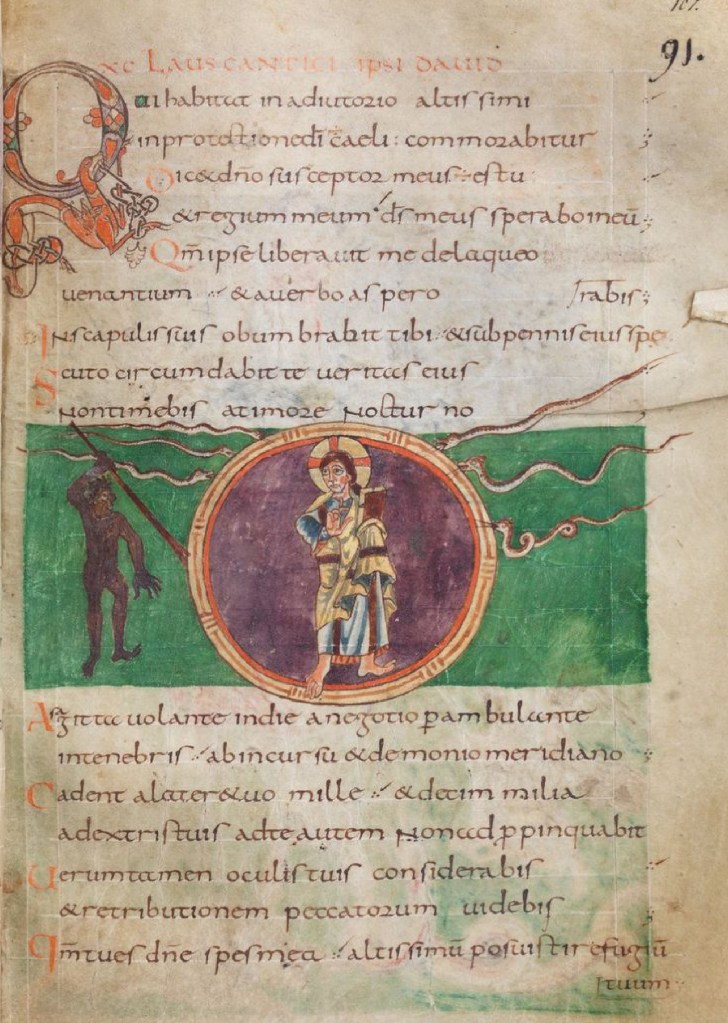 91.
XC LAUS CANTICI IPSI DAUID
Qui habitat in adiutorio altissimi
in protectione dī caeli : commorabitur
Dic& dño susceptor meus es tu
& refugium meum d̄s meus sperabo in eū
Qm̄ ipse liberauit me de laqueo
uenantium & auerbo aspero
rabis
In scapulis suis obumbrabit tibi & sub pennis eius spe
Scuto circumdabit te ueritas eius
Non timebis a timore nocturno
A sagitta uolante indie anegotio p̱ambulante
intenebris ab incursu & demonio meridiano
Cadent alater& uo mille & decim milia
adextris tuis ad te autem non adp̱pinquabit
Uerumtamen oculis tuis considerabis
& retributionem peccatorum uidebis
Qm̄ tu es dñe spes mea altissimū posuisti refugiū
tuum